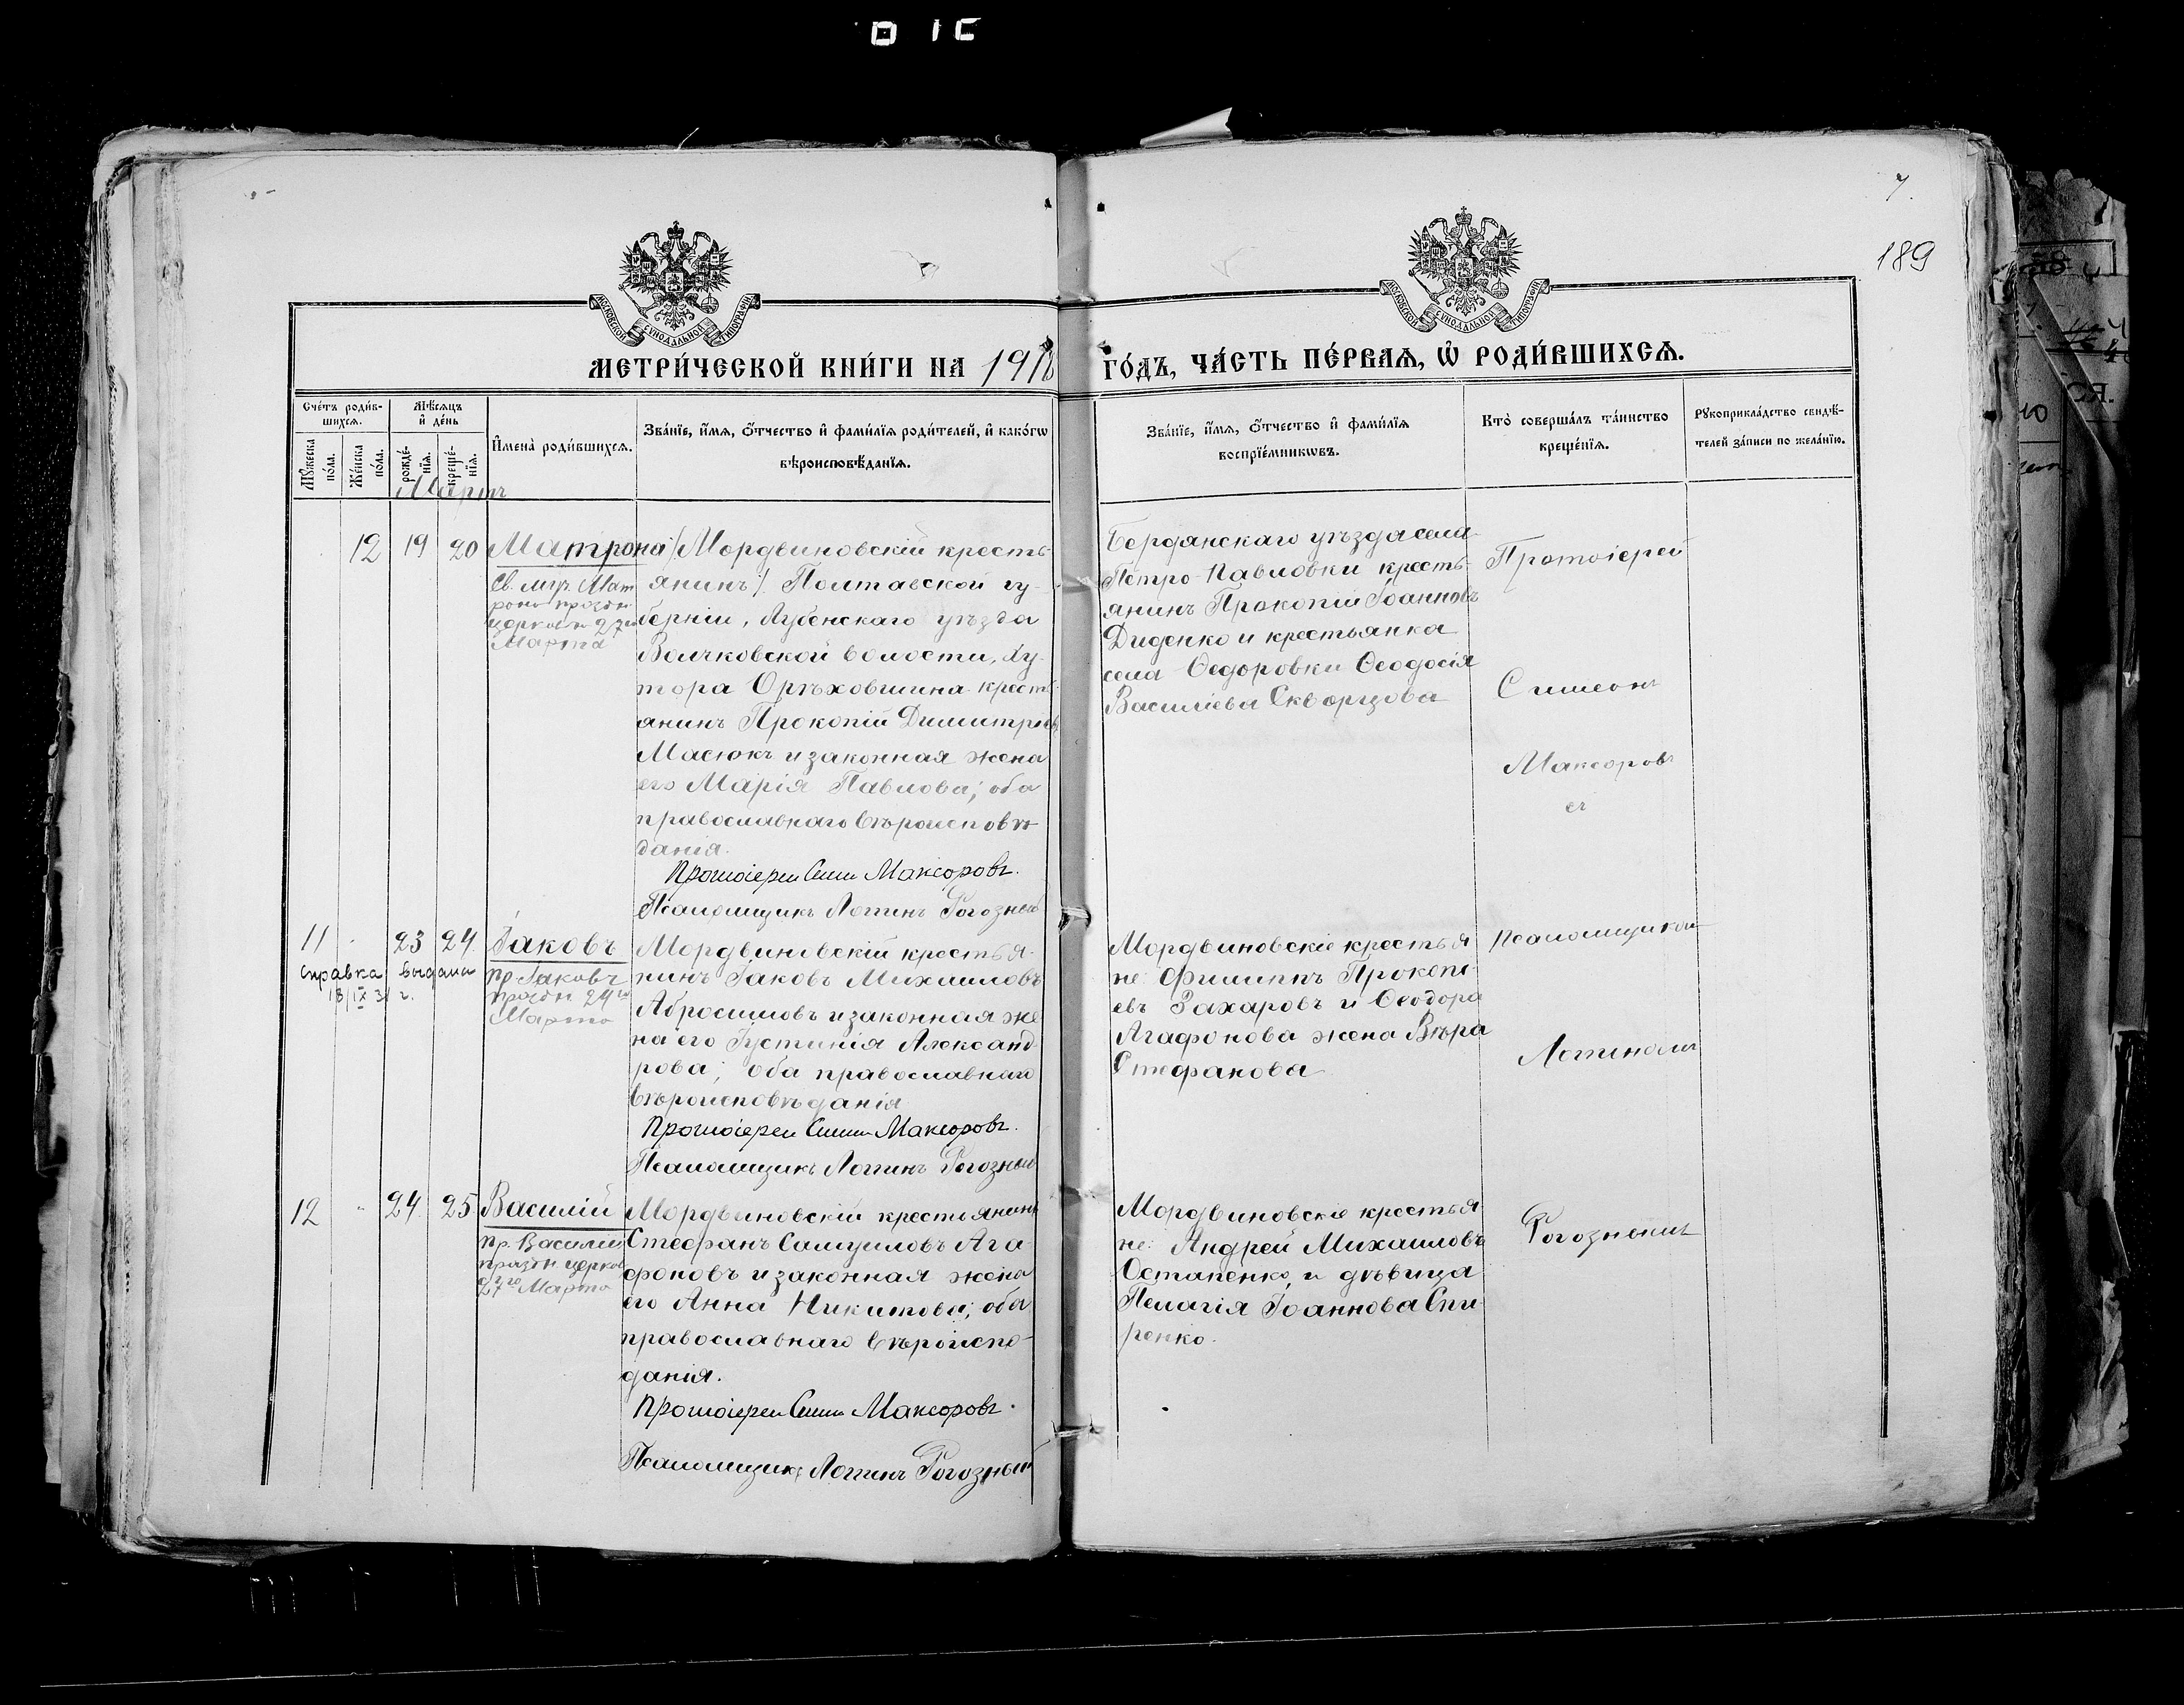 7.
189
МЕТРИ́ЧЕСКОЙ КНИ́ГИ НА 1918 ГО́ДЪ, ЧА́СТЬ ПЕ́РВАѦ, Ѡ҆ РОДИ́ВШИХСѦ.
МОСКОВСКОЙ СѴНОДАЛЬНОЙ ТИПОГРАФІИ
МОСКОВСКОЙ СѴНОДАЛЬНОЙ ТИПОГРАФІИ
Сче́тъ роди́в-
шихсѧ.
Мꙋ́жеска
по́ла.
Же́нска
по́ла.
Мѣ́сѧцъ
и҆ де́нь
рожде́-
нїѧ.
креще́-
нїѧ.
И҆мена̀ роди́вшихсѧ.
Зва́нїе, и҆́мѧ, ѻ҆́тчество и҆ фами́лїѧ роди́телей, и҆ како́гѡ
вѣроисповѣ́данїѧ.
Зва́нїе, и҆́мѧ, ѻ҆́тчество и҆ фами́лїѧ
воспрїе́мникѡвъ.
Кто̀ соверша́лъ та́инство
креще́нїѧ.
Рꙋкоприкла́дство свидѣ́-
телей за́писи по жела́нїю.
Мартъ
12 19 20 Матрона
Св. муч. Мат
роно праздн
церковь 27го
Марта
/Мордвиновскій кресть-
янинъ/ Полтавской гу-
берніи, Лубенскаго уѣзда
Волчковской волости, ху-
тора Орѣховщина кресть-
янинъ Прокопій Димитріевъ
Масюкъ и законная жена
его Марія Павлова; оба
православнаго вѣроисповѣ-
данія.
Протоіерей Симеонъ Максоровъ.
Псаломщикъ Логинъ Рогозный
Бердянскаго уѣзда села
Петро-Павловки кресть-
янинъ Прокопій Іоанновъ
Диденко и крестьянка
села Ѳедоровки Ѳеодосія
Василіева Скворцова
Протоіерей
Симеонъ
Максоровъ
съ
11 23 24 Іаковъ
Справка выдана
18/IX 3 г.
пр. Іаковъ
праздн 24го
Марта
Мордвиновскій крестья-
нинъ Іаковъ Михаиловъ
Абросимовъ и законная же
на его Іустинія Александ
рова; оба православнаго
вѣроисповѣданія
Протоіерей Симеонъ Максоровъ.
Псаломщикъ Логинъ Рогозный
Мордвиновскіе крестья
не: Филиппъ Прокопі-
евъ Захаровъ и Ѳеодора
Агафонова жена Вѣра
Стефанова
псаломщикомъ
Логиномъ
12 24 25 Василій
пр. Василій
праздн церков
27го Марта
Мордвиновскій крестьянинъ
Стефанъ Самуиловъ Ага-
фоновъ и законная жена
его Анна Никитова; оба
православнаго вѣроиспо-
данія.
Протоіерей Симеонъ Максоровъ.
Псаломщикъ Логинъ Рогозный
Мордвиновскіе крестья
не: Андрей Михаиловъ
Остапенко, и дѣвица
Пелагія Іоаннова Спи-
ренко.
Рогознымъ